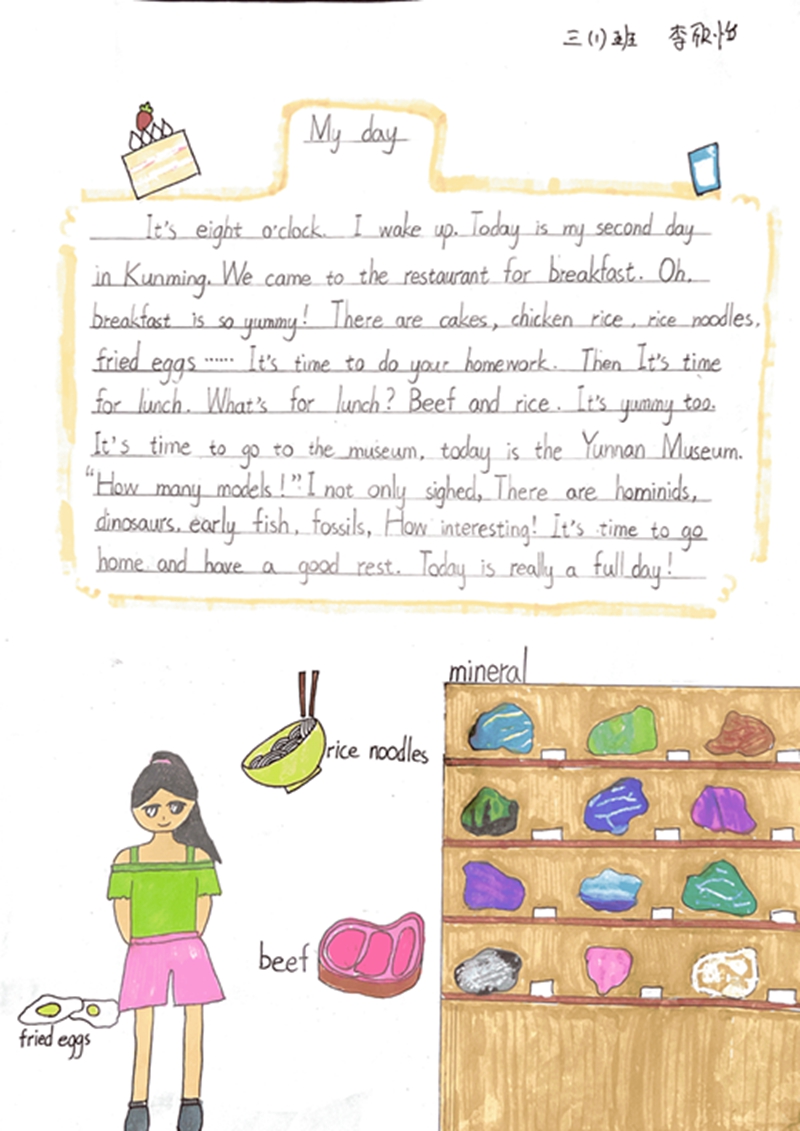 三(1)班 李欣怡
My day
It's eight o'clock. I wake up. Today is my second day
in Kunming. We came to the restaurant for breakfast. Oh,
breakfast is so yummy! There are cakes, chicken rice, rice noodles,
fried eggs …… It's time to do your homework. Then It's time
for lunch. What's for lunch? Beef and rice. It's yummy too.
It's time to go to the museum, today is the Yunnan Museum.
"How many models!" I not only sighed, There are hominids,
dinosaurs, early fish, fossils, How interesting! It's time to go
home and have a good rest. Today is really a full day!
mineral
rice noodles
beef
fried eggs